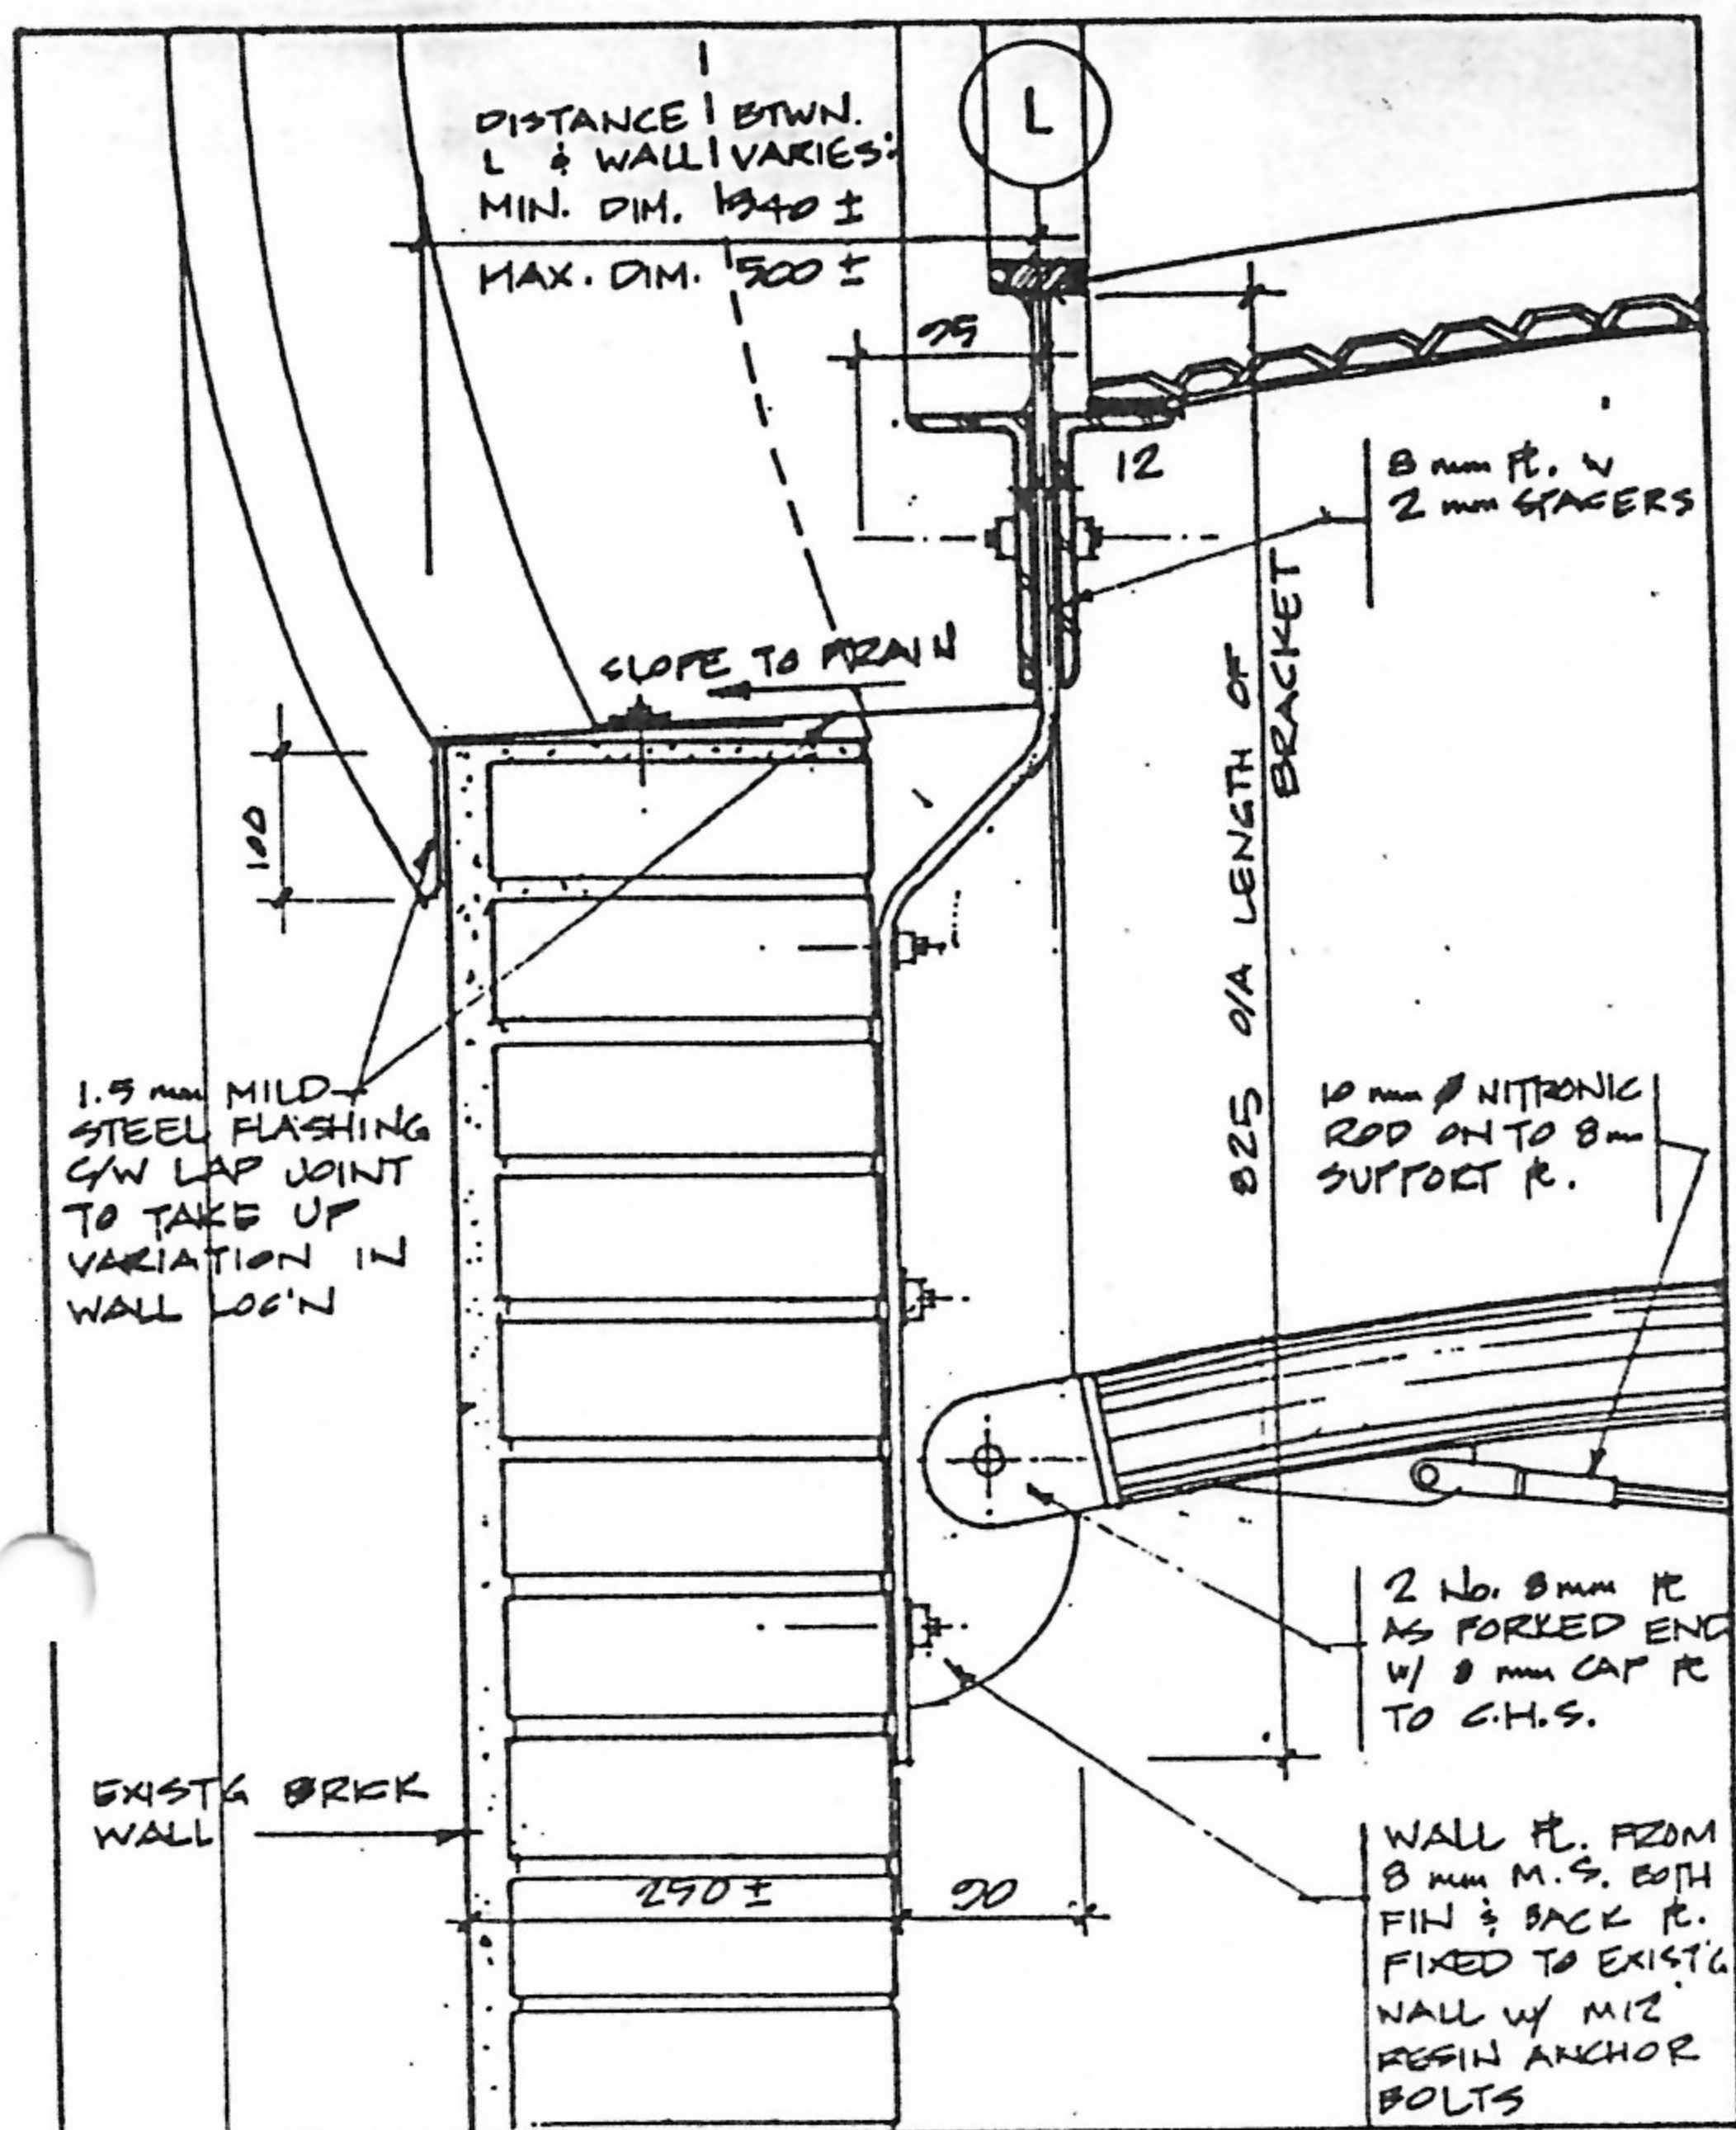 DISTANCE BTWN.
L & WALL VARIES:
MIN. DIM. 340 ±
MAX. DIM. 500 ±
L
95
12
8 mm PL. W
2 mm SPACERS
SLOPE TO DRAIN
100
825 O/A LENGTH OF
BRACKET
1.5 mm MILD
STEEL FLASHING
C/W LAP JOINT
TO TAKE UP
VARIATION IN
WALL LOC'N
10 mm Ø NITRONIC
ROD ON TO 8 mm
SUPPORT PL.
2 No. 8 mm PL
AS FORKED END
W/ 8 mm CAP PL
TO C.H.S.
EXIST'G BRICK
WALL
290 ±
90
WALL PL. FROM
8 mm M.S. BOTH
FIN & BACK PL.
FIXED TO EXIST'G
WALL W/ M12
RESIN ANCHOR
BOLTS